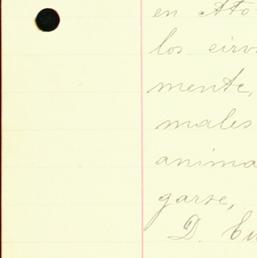 en Ato
los cirv
mente,
males
anima
garse,
D. Eu